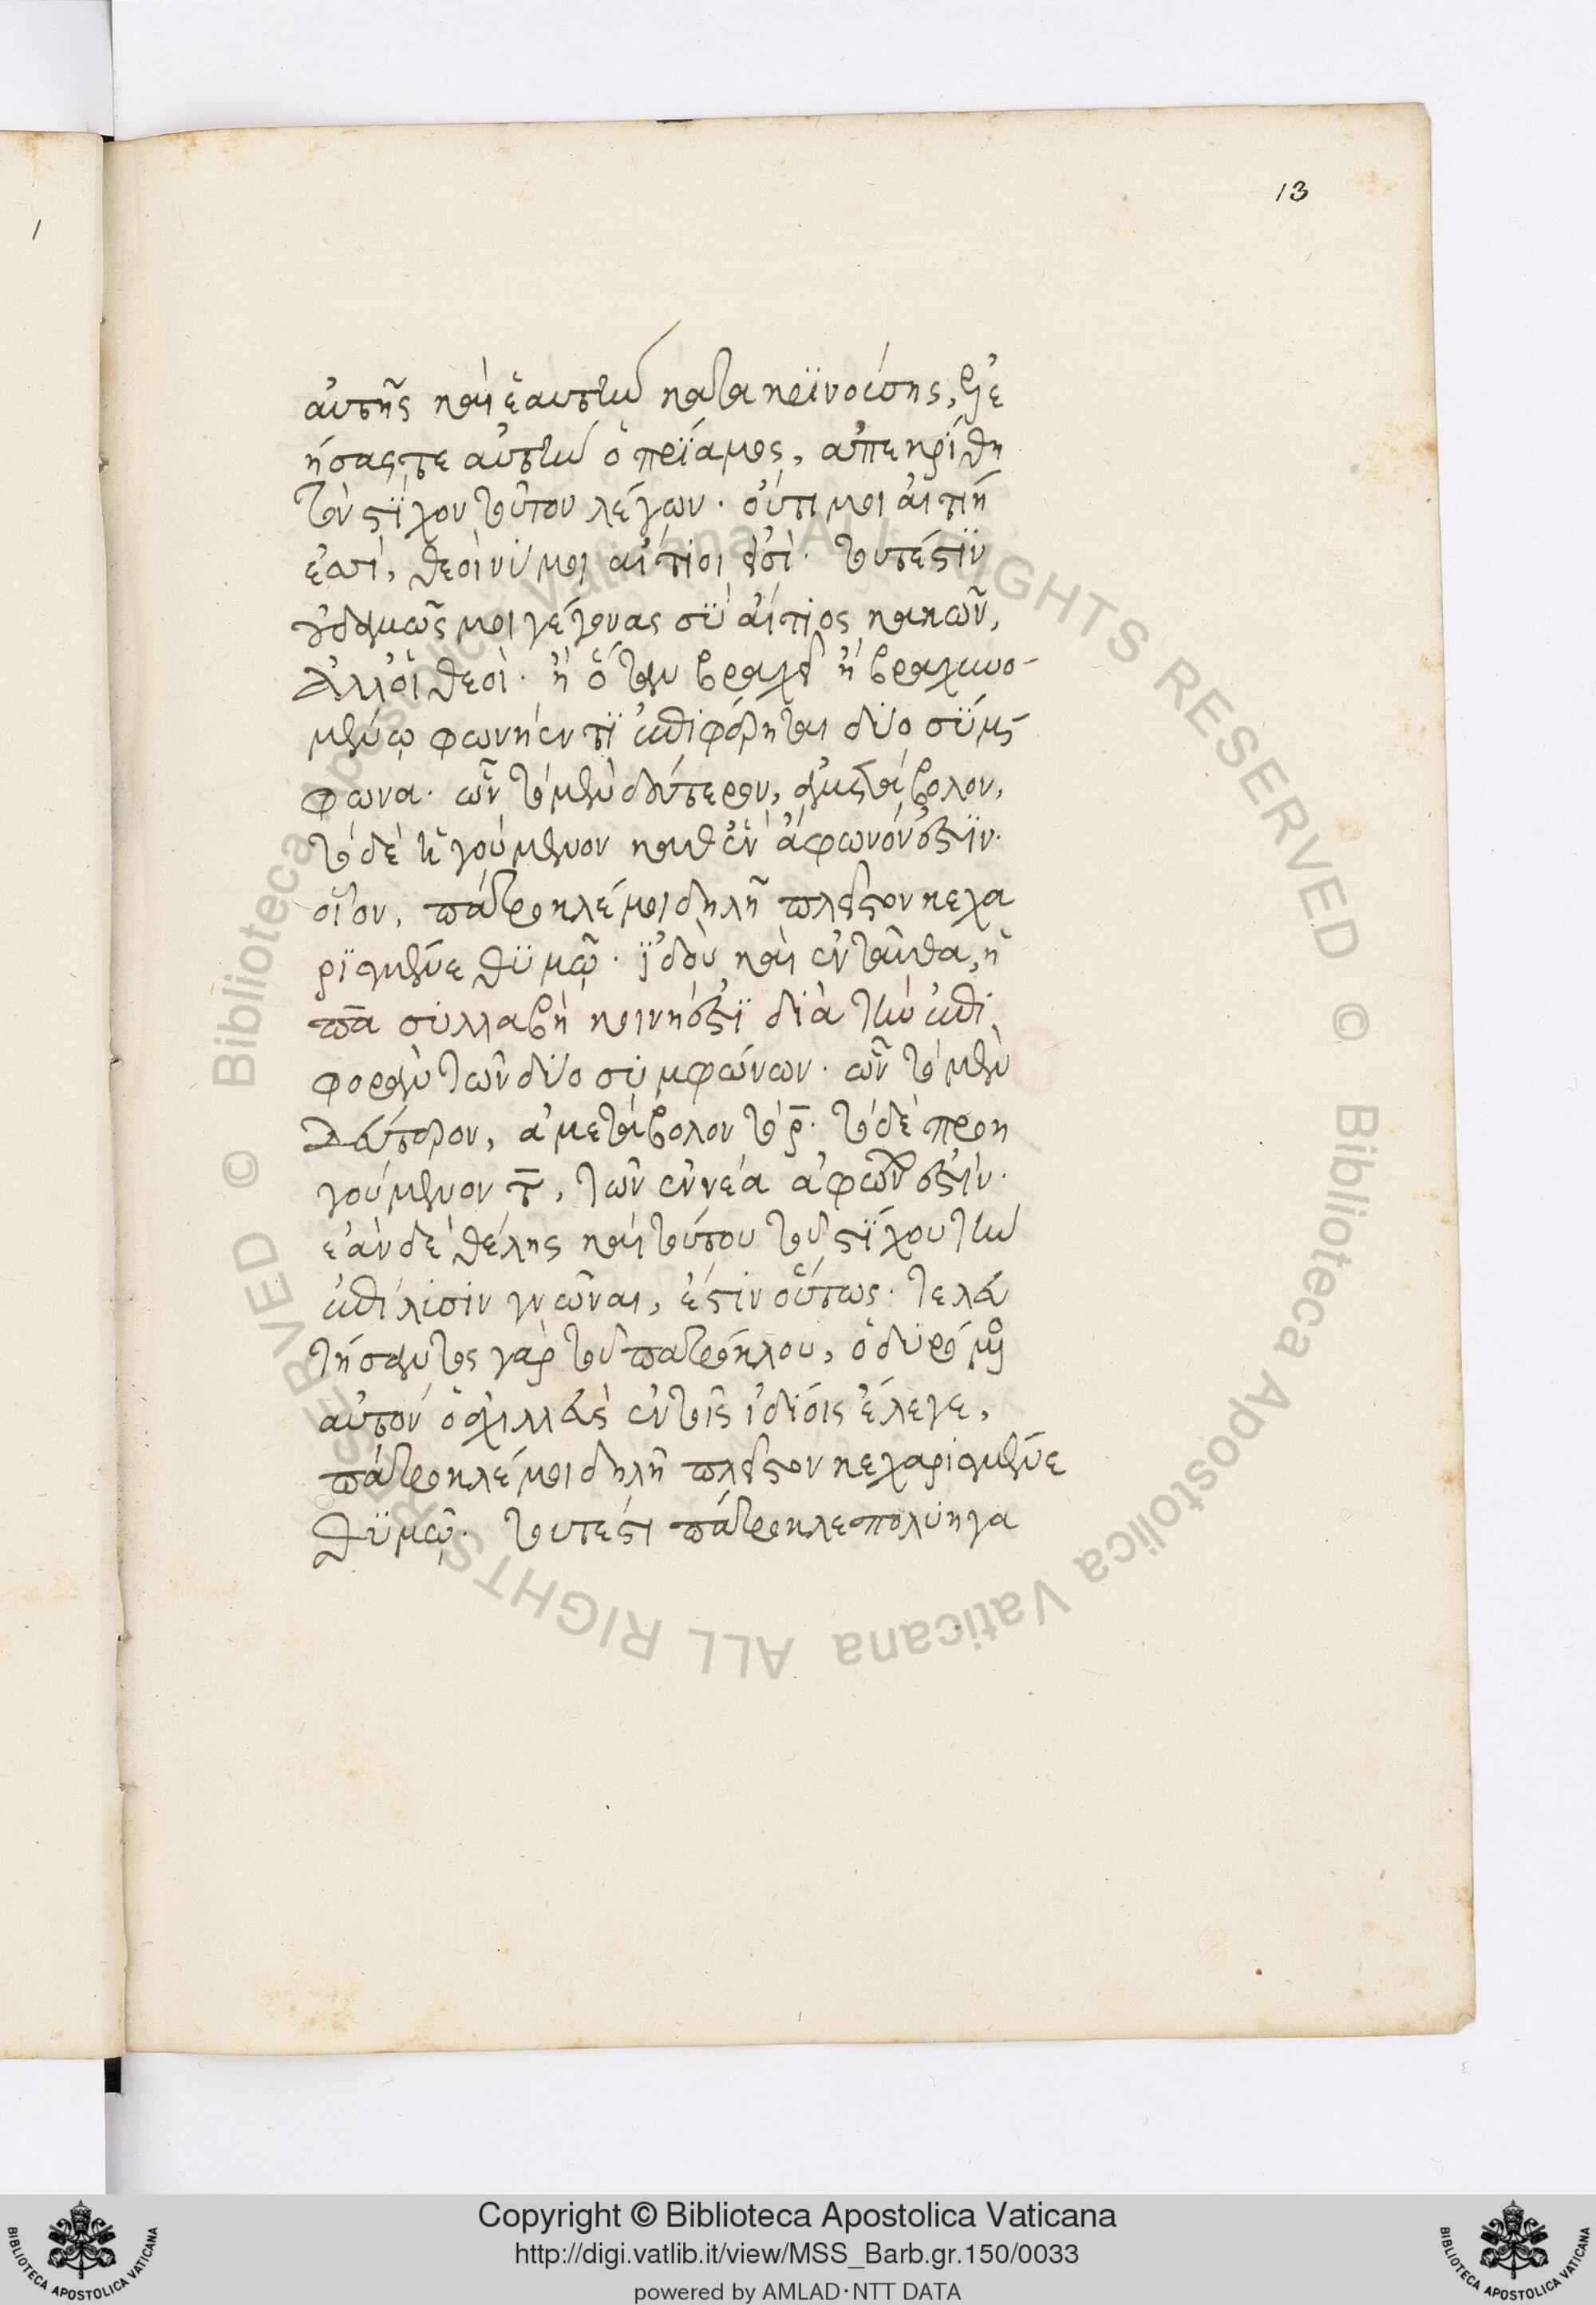 13
1
αὐτῆς καὶ ἑαυτὴν κατακρϊνούσης, ἐλε
ήσας τε αὐτὴν ὁ πρϊαμος, ἀπεκρίθη
τὸν στϊχον τοῦτον λέγων· οὔτι μοι αἰτιή
ἐσσὶ, θεοὶ νύ μοι αἴτιοι εἰσὶ· τουτέστϊν
οὐδαμῶς μοι γέγονας σὺ αἴτιος κακῶν,
ἀλλ' οἱ θεοὶ· ἢ ὅταν βραχεῖ ἢ βραχυνο-
μένῳ φωνήεντϊ ἐπιφέρηται δύο σύμ-
φωνα· ὧν τὸ μὲν δεύτερον, ἀμετάβολον,
τὸ δὲ ἡγούμενον καθ' ἓν ἄφωνόν ἐστϊν·
οἷον, πάτροκλέ μοι δειλῆ πλεῖστον κεχα
ρϊσμένε θϋμῷ· ϊδοὺ καὶ ἐνταῦθα, ἡ
πα συλλαβὴ κοινή ἐστϊ διὰ τὴν ἐπι
φορὰν τῶν δύο συμφώνων· ὧν τὸ μὲν
δεύτερον, ἀμετάβολον τὸ ρ· τὸ δὲ προη
γούμενον τ, τῶν ἐννέα ἀφώνων ἐστίν·
ἐὰν δὲ θέλης καὶ τούτου τοῦ στϊχου τὴν
ἐπίλυσιν γνῶναι, ἔστιν οὕτως· τελευ
τήσαντος γὰρ τοῦ πατρόκλου, ὀδυρόμενος
αὐτὸν ὁ ἀχιλλεὺς ἐν τοῖς ἰδίοις ἔλεγε,
πάτροκλέ μοι δειλῆ πλεῖστον κεχαρισμένε
θϋμῷ· τουτέστι πάτροκλε πολὺ ἠγα
Copyright © Biblioteca Apostolica Vaticana
http://digi.vatlib.it/view/MSS_Barb.gr.150/0033
powered by AMLAD·NTT DATA